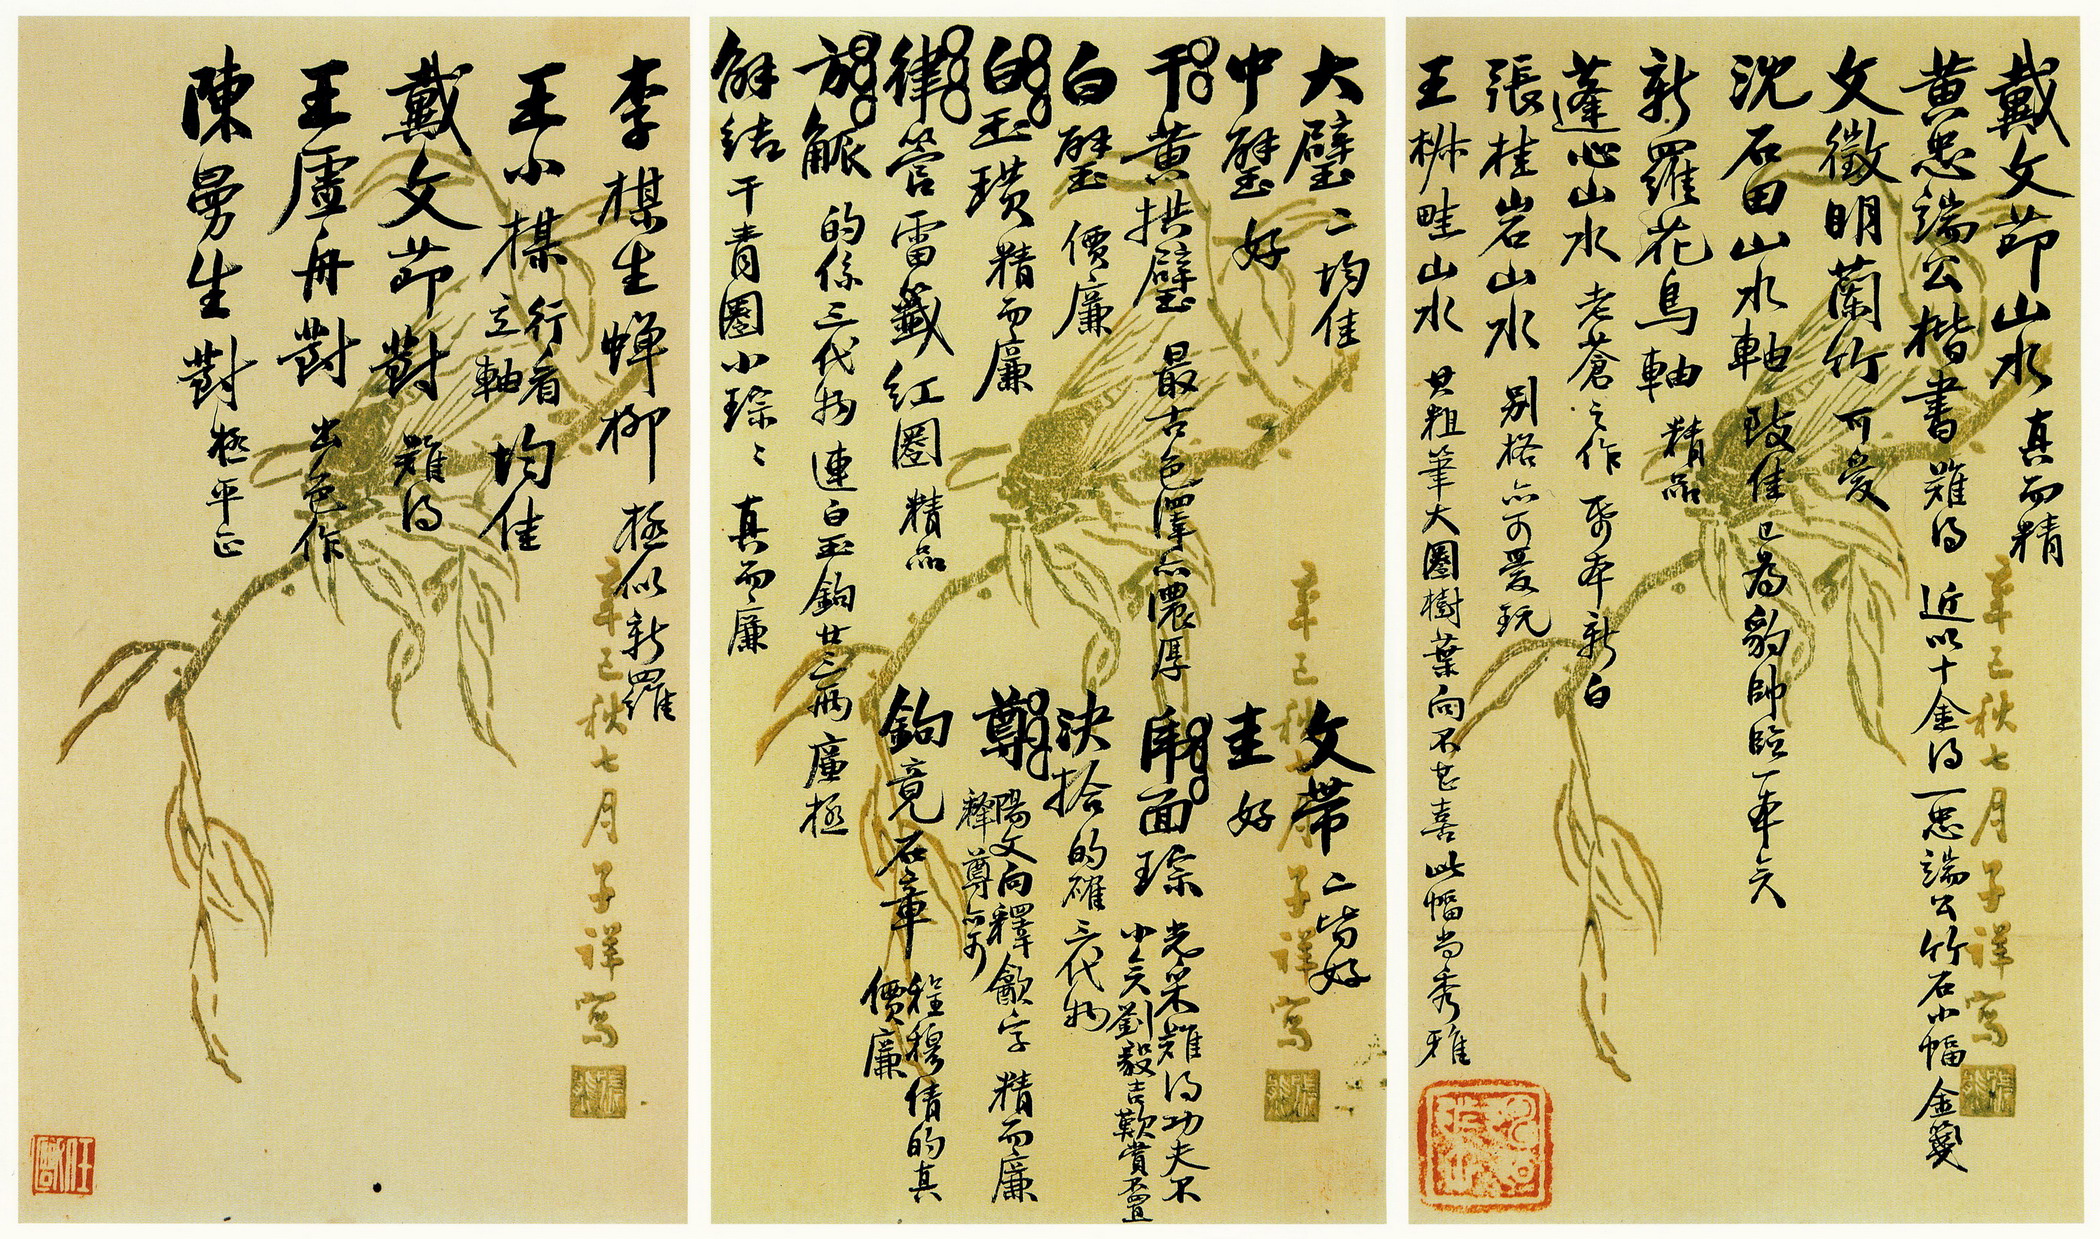 戴文節山水 真而精
黃忠端公楷書 難得 近以十金得一忠端公竹石小幅金箋
文徵明蘭竹 可愛
沈石田山水軸 致佳 已為豹帥臨一本矣
新羅花鳥軸 精品
蓬心山水 老蒼之作 紙本新白
張桂岩山水 別格亦可愛玩
王椒畦山水 其粗筆大圈樹葉向不甚喜此幅尚秀雅
辛巳秋七月子祥寫
大璧二均佳
中璧 好
玕黃拱璧 最古色澤亦濃厚
白璧 價廉
白玉璜 精而廉
律管雷籤 紅圈 精品
觚 的係三代物 連白玉鉤廿三兩 廉極
解結 干青圈小琮 真而廉
文帶 二皆好
圭 好
面琮 光采難得功夫不
小矣劉毅吉歎賞不置
決拾 的確三代物
尊 陽文向釋龢字 精而廉
釋尊亦可
鉤 竟石章 程穆倩的真
價廉
辛巳秋七月子祥寫
李楳生蟬柳 極似新羅
王小楳 行看
立軸 均佳
戴文節對 難得
王虛舟對 出色作
陳曼生對 極平正
辛巳秋七月子祥寫